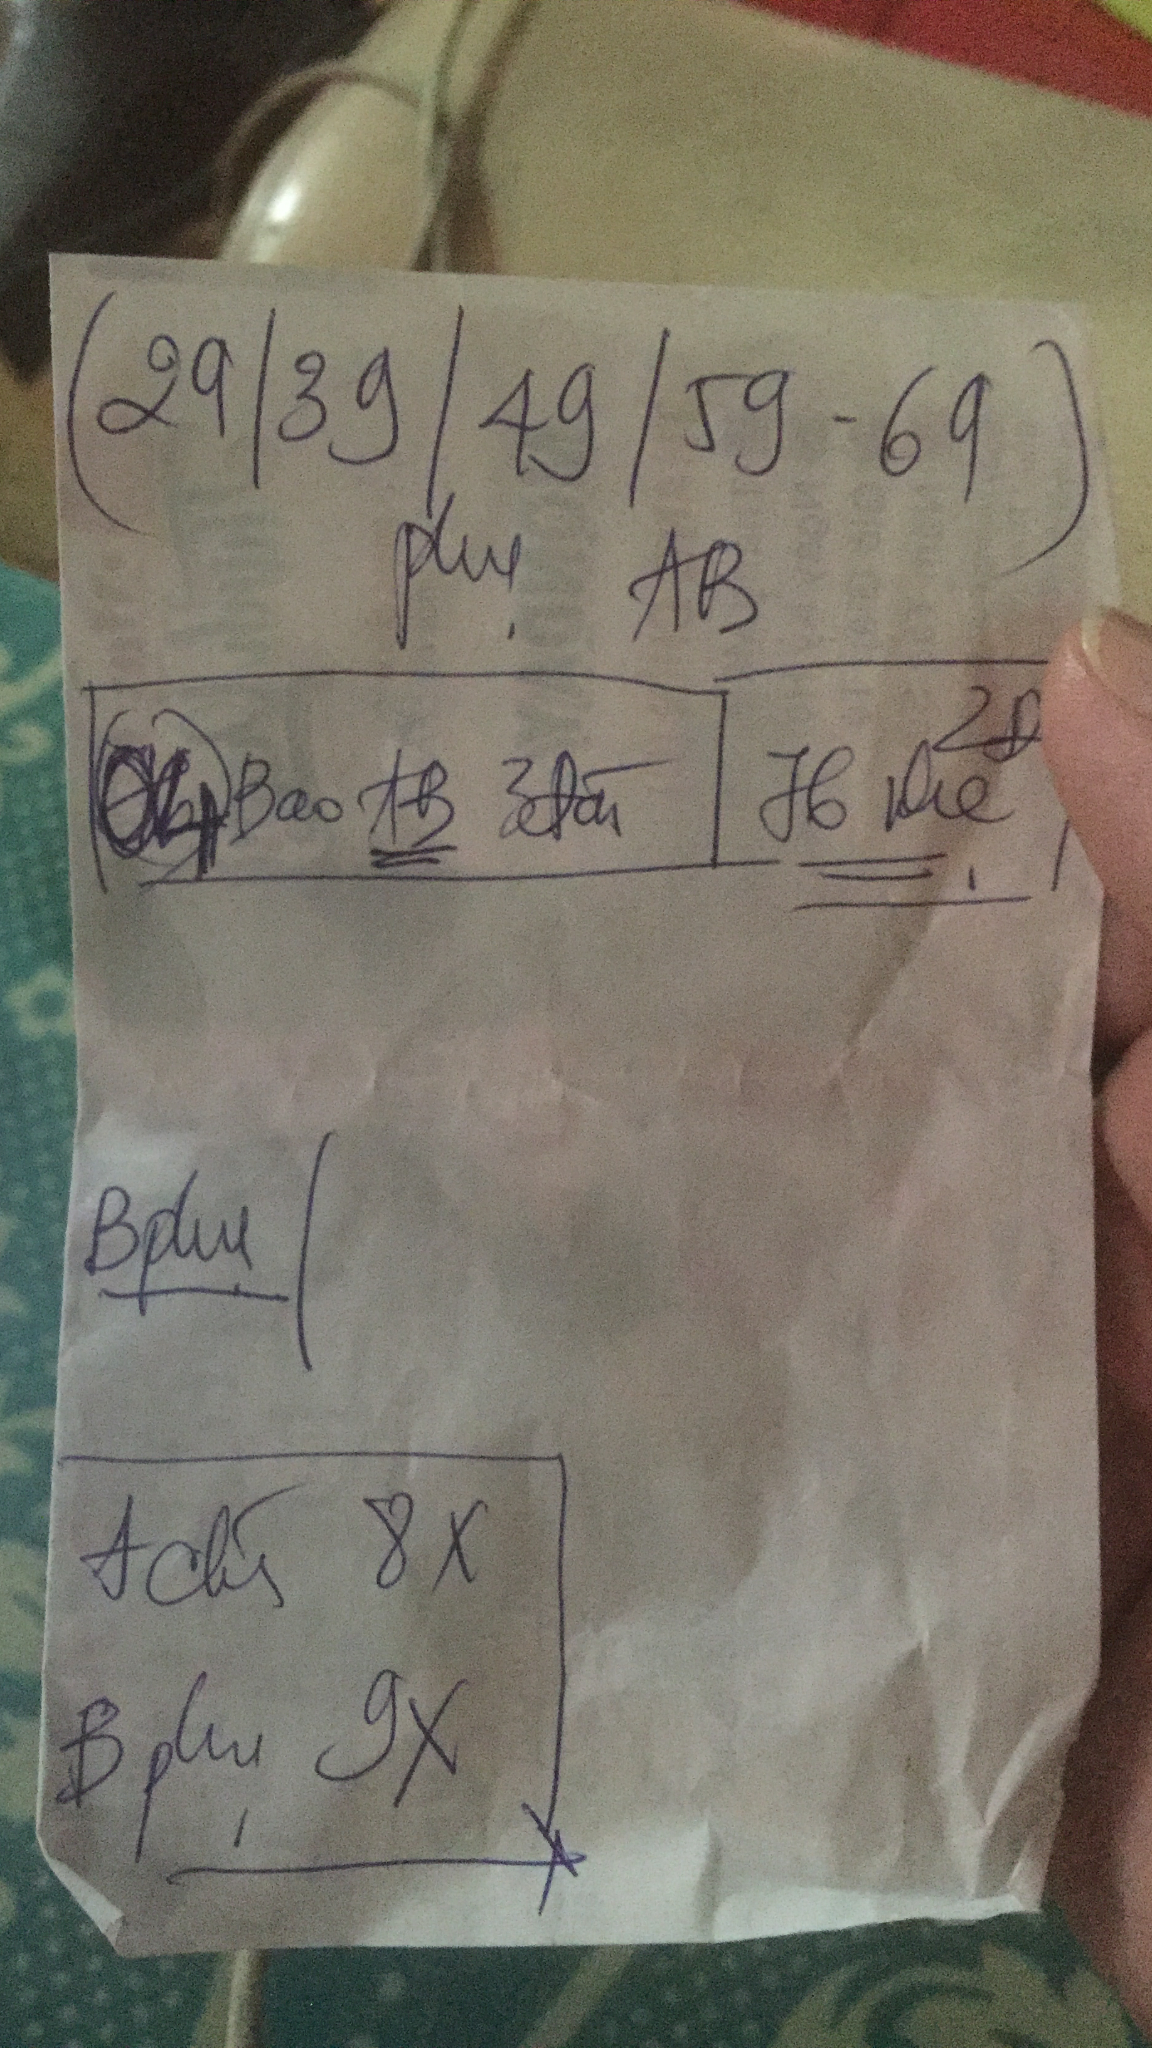 (29/39/49/59-69)
phụ AB
(04) Bao AB 3 đài
phụ 2Đ
B phụ /
A chủ 8X
B phụ 9X